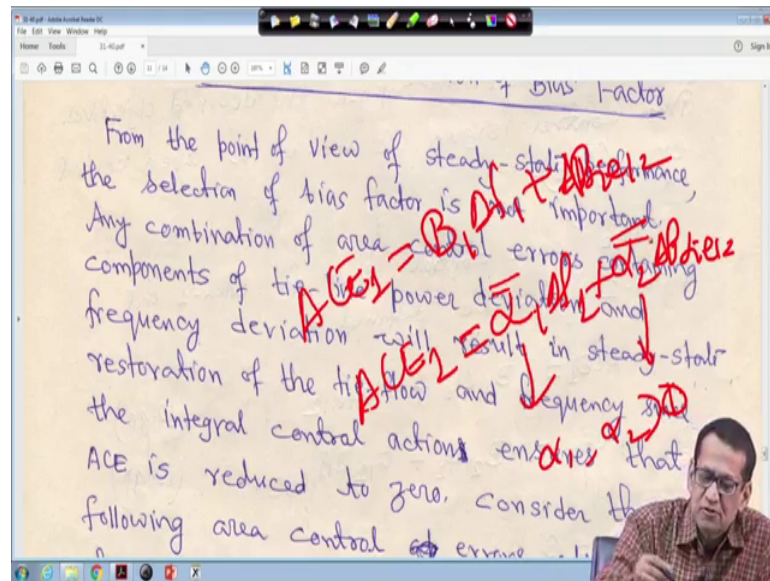 31-40.pdf - Adobe Acrobat Reader DC
File Edit View Window Help
Home Tools 31-40.pdf × Sign In
of Bias Factor
From the point of view of steady-state performance,
the selection of bias factor is not important.
Any combination of area control errors containing
components of tie-line power deviation and
frequency deviation will result in steady-state
restoration of the tie-flow and frequency since
the integral control actions ensures that
ACE is reduced to zero. Consider the
following area control errors
ACE1 = B1 Δf1 + ΔPtie12
ACE2 = α1 Δf2 + α2 ΔPtie12
α1, α2